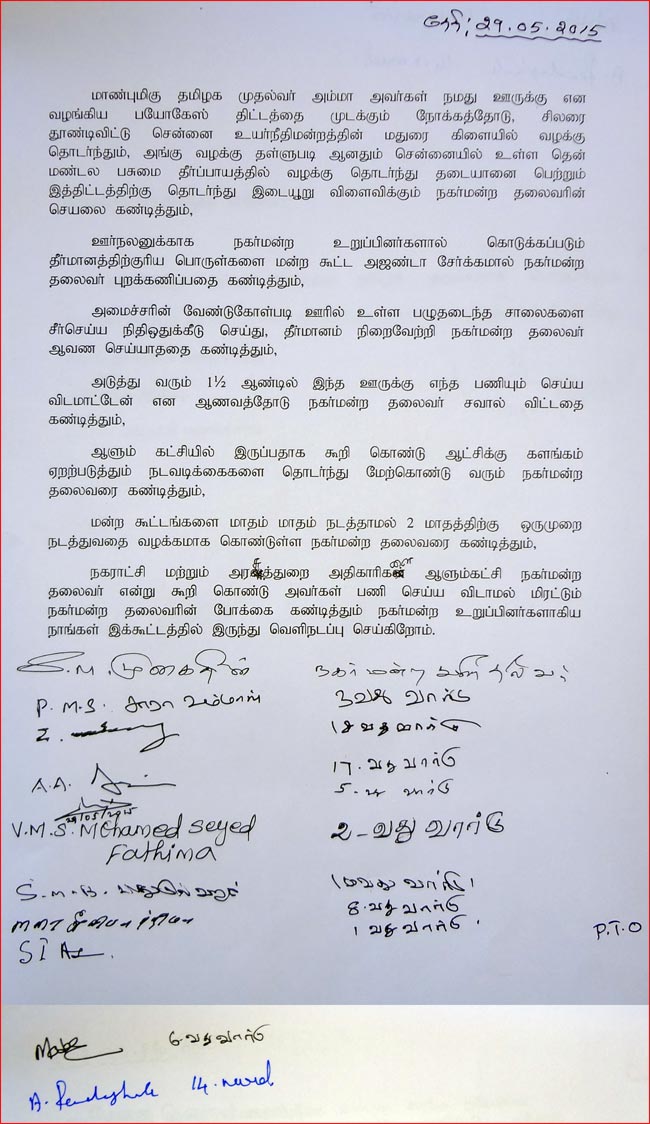 தேதி; 29.05.2015
மாண்புமிகு தமிழக முதல்வர் அம்மா அவர்கள் நமது ஊருக்கு என
வழங்கிய பயோகேஸ் திட்டத்தை முடக்கும் நோக்கத்தோடு, சிலரை
தூண்டிவிட்டு சென்னை உயர்நீதிமன்றத்தின் மதுரை கிளையில் வழக்கு
தொடர்ந்தும், அங்கு வழக்கு தள்ளுபடி ஆனதும் சென்னையில் உள்ள தென்
மண்டல பசுமை தீர்ப்பாயத்தில் வழக்கு தொடர்ந்து தடையானை பெற்றும்
இத்திட்டத்திற்கு தொடர்ந்து இடையூறு விளைவிக்கும் நகர்மன்ற தலைவரின்
செயலை கண்டித்தும்,
ஊர்நலனுக்காக நகர்மன்ற உறுப்பினர்களால் கொடுக்கப்படும்
தீர்மானத்திற்குரிய பொருள்களை மன்ற கூட்ட அஜண்டா சேர்க்கமால் நகர்மன்ற
தலைவர் புறக்கணிப்பதை கண்டித்தும்,
அமைச்சரின் வேண்டுகோள்படி ஊரில் உள்ள பழுதடைந்த சாலைகளை
சீர்செய்ய நிதிஒதுக்கீடு செய்து, தீர்மானம் நிறைவேற்றி நகர்மன்ற தலைவர்
ஆவண செய்யாததை கண்டித்தும்,
அடுத்து வரும் 1½ ஆண்டில் இந்த ஊருக்கு எந்த பணியும் செய்ய
விடமாட்டேன் என ஆணவத்தோடு நகர்மன்ற தலைவர் சவால் விட்டதை
கண்டித்தும்,
ஆளும் கட்சியில் இருப்பதாக கூறி கொண்டு ஆட்சிக்கு களங்கம்
ஏறற்படுத்தும் நடவடிக்கைகளை தொடர்ந்து மேற்கொண்டு வரும் நகர்மன்ற
தலைவரை கண்டித்தும்,
மன்ற கூட்டங்களை மாதம் மாதம் நடத்தாமல் 2 மாதத்திற்கு ஒருமுறை
நடத்துவதை வழக்கமாக கொண்டுள்ள நகர்மன்ற தலைவரை கண்டித்தும்,
நகராட்சி மற்றும் அரசுத்துறை அதிகாரிகளை ஆளும்கட்சி நகர்மன்ற
தலைவர் என்று கூறி கொண்டு அவர்கள் பணி செய்ய விடாமல் மிரட்டும்
நகர்மன்ற தலைவரின் போக்கை கண்டித்தும் நகர்மன்ற உறுப்பினர்களாகிய
நாங்கள் இக்கூட்டத்தில் இருந்து வெளிநடப்பு செய்கிறோம்.
நகர் மன்ற
P.M.S. சாரா உம்மாள் 3வது வார்டு
வார்டு
17. வது வார்டு
A.A. 5. வது வார்டு
29/05/2015
V.M.S. Mohamed Seyed 2-வது வார்டு
Fathima
S.M.B. 10வது வார்டு
8. வது வார்டு
1 வது வார்டு.
P.T.O
S I
6 வது வார்டு
A. 14.